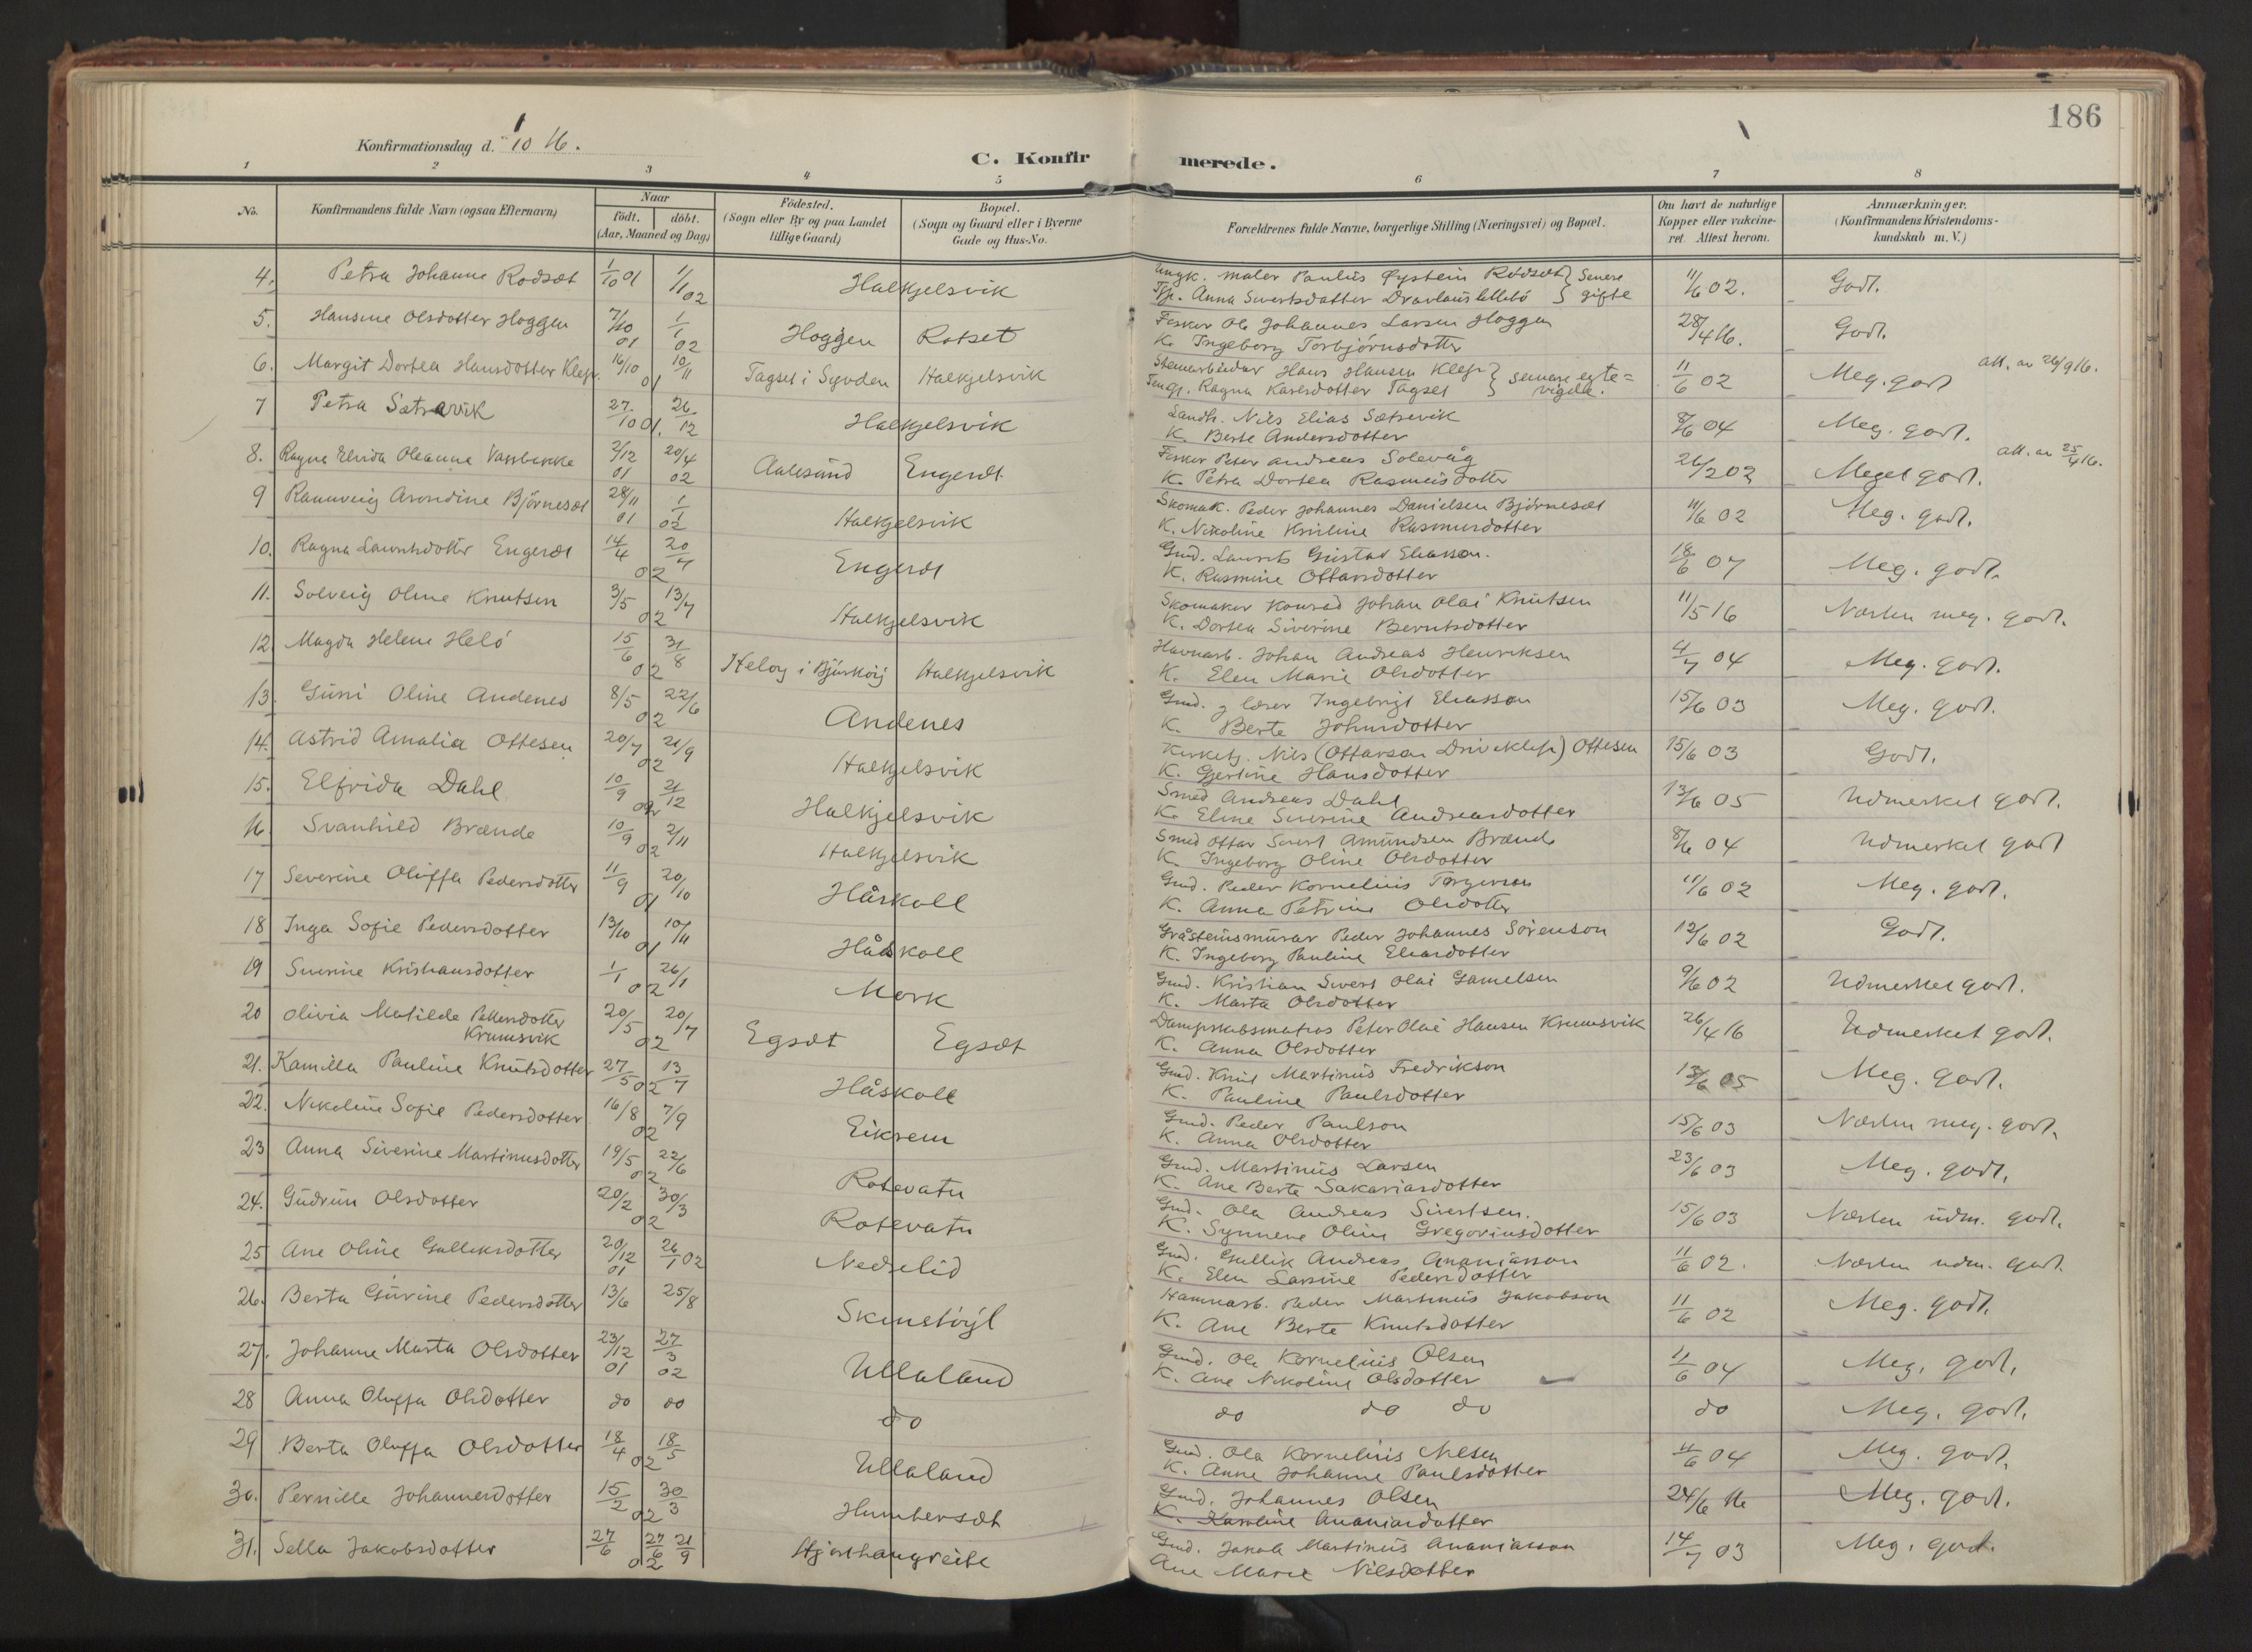 186
Konfirmationsdag d. 1/10 16.
C. Konfirmerede.
1 2 3 4 5 6 7 8
No. Konfirmandens fulde Navn (ogsaa Efternavn) Naar født. døbt. (Aar, Maaned og Dag) Fødested. (Sogn eller By og paa Landet tillige Gaard) Bopæl. (Sogn og Gaard eller i Byerne Gade og Hus-No. Forældrenes fulde Navne, borgerlige Stilling (Næringsvei) og Bopæl. Om havt de naturlige Kopper eller vakcineret. Attest herom. Anmærkninger. (Konfirmandens Kristendomskundskab m. V.)
4. Petra Johanne Rødsæt 1/10 01 1/1 02 Halkjelsvik Ungk. maler Paulus Øystein Rødsæt } senere gifte 11/6 02. Godt.
Tp. Anna Sivertsdatter Dravlaus
5. Hansine Olsdotter Hoggen 7/10 01 1/1 02 Hoggen Rotset Fisker Ole Johannes Larsen Hoggen 28/4 16. Godt.
K. Ingeborg Torbjørnsdotter
6. Margit Dortea Hansdotter Klep. 16/10 10/11 01 Tagset i Syvden Halkjelsvik Stenarbeidar Hans Hansen Klep } senere egtevigde. 11/6 02 Meg. godt att. av 26/9 16.
Ragna Karlsdotter Tagset
7 Petra Sætrevik 27/10 01. 26/12 Halkjelsvik Landh. Nils Elias Sætrevik 8/6 04 Meg. godt.
K. Berte Andersdotter
8. Ragna Elvida Oleanna Vassbakke 2/12 01 20/4 02 Aalesund Engeset Fisker Peter Andreas Solevåg 26/2 02 Meget godt. att. av 25/4 16.
K. Petra Dortea Rasmusdotter
9 Rannveig Arondine Bjørneset 28/11 01 1/1 02 Halkjelsvik Skomak. Peder Johannes Danielsen Bjørneset 11/6 02 Meg. godt.
K. Nikoline Kristine Rasmusdotter
10. Ragna Lauritsdotter Engeset 14/4 20/7 02 Engeset Grud. Laurits Gustav Eliasson. 18/6 07 Meg. godt.
K. Rasmine Ottarsdotter
11. Solveig Oline Knutsen 3/5 13/7 02 Halkjelsvik Skomaker Konrad Johan Olai Knutsen 11/5 16 Næsten meg. godt.
K. Dortea Siverine Berntsdotter
12. Magda Helene Helö 15/6 31/8 02 Heløy i Bjarkøy Halkjelsvik Havnarb. Johan Andreas Henriksen 4/7 04 Meg. godt.
K. Elen Marie Olsdotter
13. Guni Oline Andenes 8/5 22/6 02 Andenes Grud. g lærer Ingebrigt Eliasson 15/6 03 Meg. godt.
K. Berte Johnsdotter
14. Astrid Amalia Ottesen 20/7 21/9 02 Halkjelsvik Kirketj. Nils (Ottarson Driveklep) Ottesen 15/6 03 Godt.
K. Gjertine Hansdotter
15. Elfrida Dahl 10/9 21/12 02 Halkjelsvik Smed Andreas Dahl 13/6 05 Udmerket godt.
K. Eline Siverine Andreasdotter
16 Svanhild Brænde 10/9 2/11 02 Halkjelsvik Smed Ottar Sivert Amundsen Brænde 8/6 04 Udmerket godt
K. Ingeborg Oline Olsdotter
17 Severine Oluffa Pedersdotter 11/9 20/10 01 Håskoll Grud. Peder Kornelius Torgerson 11/6 02 Meg. godt.
K. Anna Petrine Olsdotter
18 Inga Sofie Pedersdotter 13/10 10/11 01 Håskoll Gråsteinsmurar Peder Johannes Sörenson 12/6 02 Godt.
K. Ingeborg Pauline Eliasdotter
19 Siverine Kristiansdotter 1/1 26/1 02 Mork Grud. Kristian Sivert Olai Gamelsen 9/6 02 Udmerket godt.
K. Marta Olsdotter
20 Olivia Matilde Pettersdotter Krumsvik 20/5 20/7 02 Egsæt Egsæt Dampskibsmatros Peter Olai Hansen Krumsvik 26/4 16 Udmerket godt.
K. Anna Olsdotter
21. Kamilla Pauline Knutsdotter 27/5 02 13/7 Håskoll Grud. Knut Martinus Fredrikson 13/6 05 Meg. godt.
K. Pauline Paulsdotter
22. Nikoline Sofie Pedersdotter 16/8 7/9 02 Eiksem Grud. Peder Paulson 15/6 03 Næsten meg. godt.
K. Anna Olsdotter
23 Anna Siverine Martinusdotter 19/5 22/6 02 Rotevatn Grud. Martinus Larsen 23/6 03 Meg. godt.
K. Ane Berte Sakariasdotter
24. Gudrun Olsdotter 20/2 30/3 02 Rotevatn Grud. Ola Andreas Sivertsen. 15/6 03 Næsten udm. godt.
K. Synneve Oline Gregoriusdotter
25 Ane Oline Gulleiksdotter 20/12 01 26/1 02 Nedrelid Grud. Gullik Andreas Ananiasson 11/6 02. Næsten udm. godt.
K. Elen Larsine Pedersdotter
26. Berta Gurine Pedersdotter 13/6 25/8 Skinstöyl Hamnarb. Peder Martinus Jakobson 11/6 02 Meg. godt.
K. Ane Berte Knutsdotter
27. Johanne Marta Olsdotter 23/12 01 27/3 02 Ullaland Grud. Ole Kornelius Olsen 11/6 04 Meg. godt.
K. Ane Nikoline Olsdotter
28 Anna Oluffa Olsdotter do do do do do do do Meg. godt.
29 Berta Oluffa Olsdotter 18/4 18/5 02 Ullaland Grud. Ola Kornelius Nilsen 11/6 04 Meg. godt.
K. Anne Johanne Paulsdotter
30. Pernille Johannesdotter 15/2 30/3 02 Humberset Grud. Johannes Olsen 24/6 16 Meg. godt.
K. Karoline Ananiasdotter
31. Sella Jakobsdotter 27/6 27/6 21/9 02 Hjorthaugreite Grud. Jakob Martinus Ananiasson 14/7 03 Meg. godt.
Ane Marie Nilsdotter